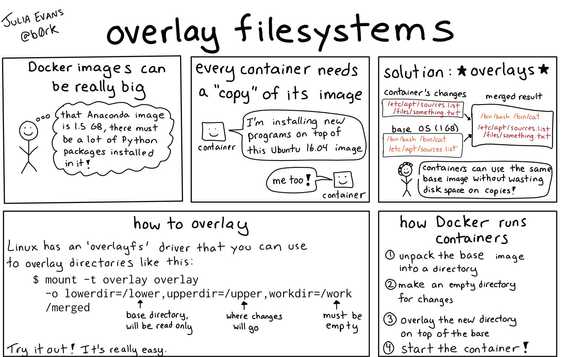 JULIA EVANS
@b0rk
overlay filesystems
Docker images can
be really big
that Anaconda image
is 1.5 GB, there must
be a lot of Python
packages installed
in it!
every container needs
a "copy" of its image
I'm installing new
programs on top of
this Ubuntu 16.04 image
container
me too!
container
solution: ★overlays★
container's changes
/etc/apt/sources.list
/files/something.txt
base OS (1GB)
/bin/bash /bin/cat
/etc/apt/sources.list
merged result
/bin/bash /bin/cat
/etc/apt/sources.list
/files/something.txt
containers can use the same
base image without wasting
disk space on copies!
how to overlay
Linux has an 'overlayfs' driver that you can use
to overlay directories like this:
$ mount -t overlay overlay
-o lowerdir=/lower,upperdir=/upper,workdir=/work
/merged
base directory,
will be read only
where changes
will go
must be
empty
Try it out! It's really easy.
how Docker runs
containers
① unpack the base image
into a directory
② make an empty directory
for changes
③ overlay the new directory
on top of the base
④ start the container!